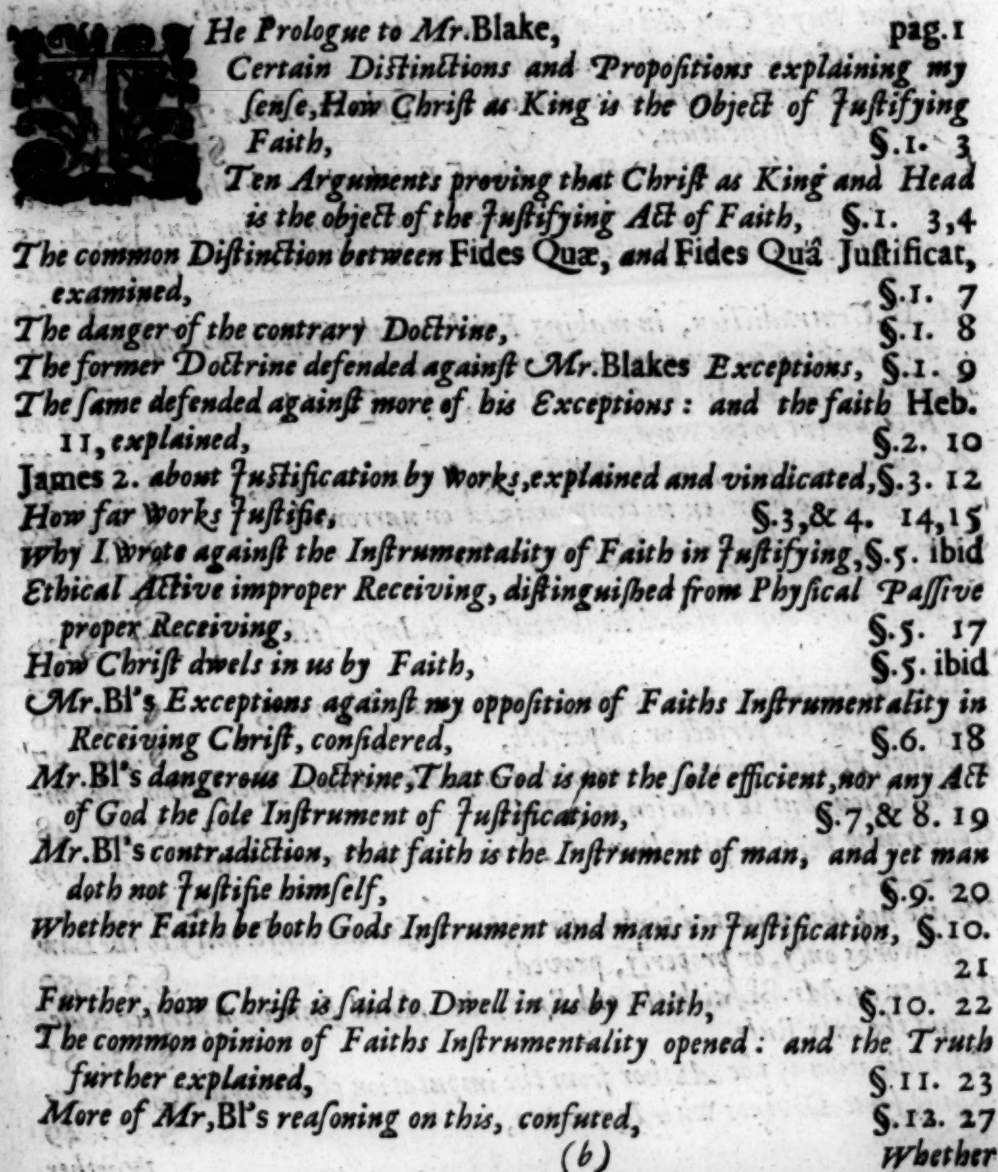 THe Prologue to Mr. Blake, pag. 1
Certain Distinctions and Propositions explaining my
sense, How Christ as King is the Object of Justifying
Faith, §. 1. 3
Ten Arguments proving that Christ as King and Head
is the object of the Justifying Act of Faith, §. 1. 3,4
The common Distinction between Fides Quæ, and Fides Quâ Justificat,
examined, §. 1. 7
The danger of the contrary Doctrine, §. 1. 8
The former Doctrine defended against Mr. Blakes Exceptions, §. 1. 9
The same defended against more of his Exceptions: and the faith Heb.
11, explained, §. 2. 10
James 2. about Justification by Works, explained and vindicated, §. 3. 12
How far Works Justifie, §. 3, & 4. 14, 15
Why I wrote against the Instrumentality of Faith in Justifying, §. 5. ibid
Ethical Active improper Receiving, distinguished from Physical Passive
proper Receiving, §. 5. 17
How Christ dwels in us by Faith, §. 5. ibid
Mr. Bl's Exceptions against my opposition of Faiths Instrumentality in
Receiving Christ, considered, §. 6. 18
Mr. Bl's dangerous Doctrine, That God is not the sole efficient, nor any Act
of God the sole Instrument of Justification, §. 7, & 8. 19
Mr. Bl's contradiction, that faith is the Instrument of man, and yet man
doth not Justifie himself, §. 9. 20
Whether Faith be both Gods Instrument and mans in Justification, §. 10.
21
Further, how Christ is said to Dwell in us by Faith, §. 10. 22
The common opinion of Faiths Instrumentality opened: and the Truth
further explained, §. 11. 23
More of Mr, Bl's reasoning on this, confuted, §. 12. 27
(b) Whether